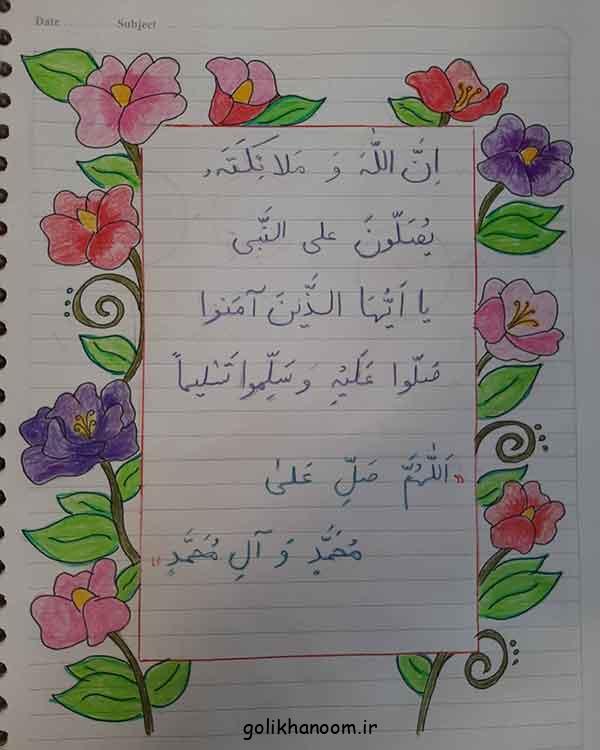 Date ........ Subject ........
اِنَّ اللّٰهَ وَ مَلائِكَتَهُ
یُصَلّونَ علی النَّبی
یا اَیُّهَا الَّذینَ آمَنوا
صَلّوا عَلَیْهِ وَ سَلِّموا تَسْلیماً
«اَللّٰهُمَّ صَلِّ عَلیٰ
مُحَمَّدٍ وَ آلِ مُحَمَّدٍ»
golikhanoom.ir